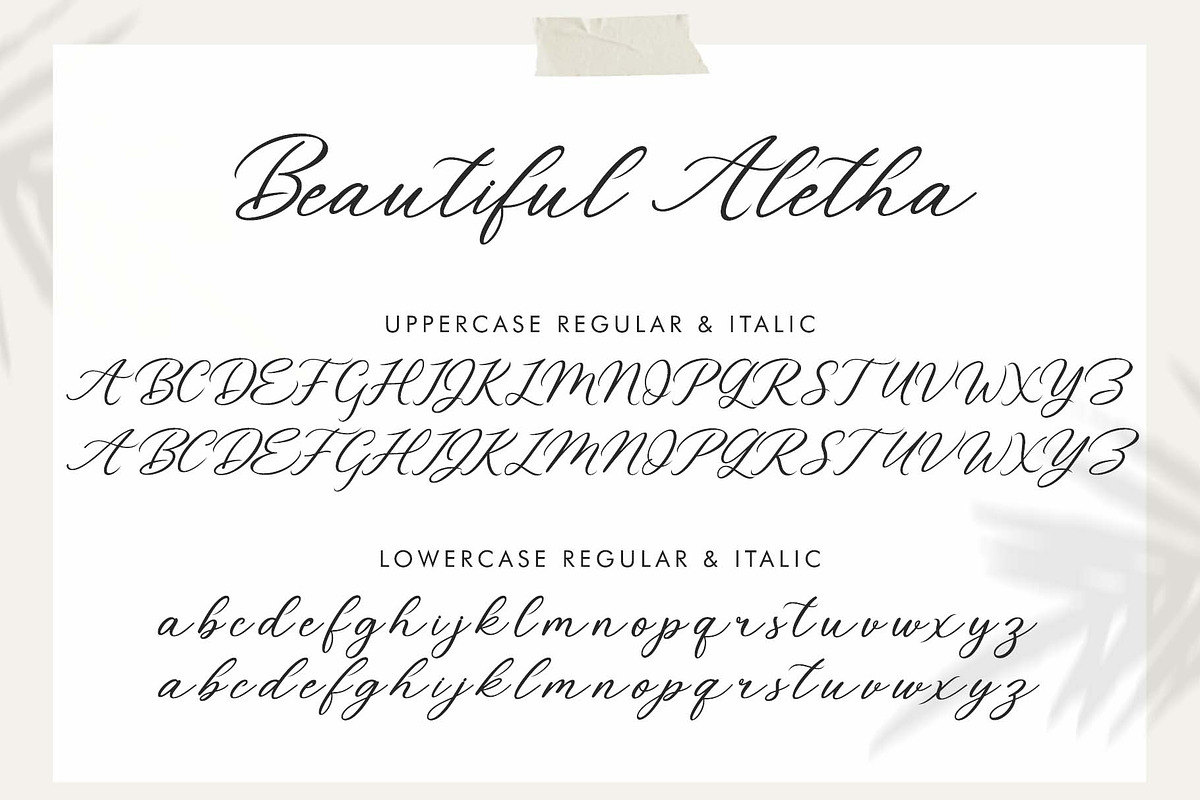 Beautiful Aletha
UPPERCASE REGULAR & ITALIC
ABCDEFGHIJKLMNOPQRSTUVWXYZ
ABCDEFGHIJKLMNOPQRSTUVWXYZ
LOWERCASE REGULAR & ITALIC
abcdefghijklmnopqrstuvwxyz
abcdefghijklmnopqrstuvwxyz